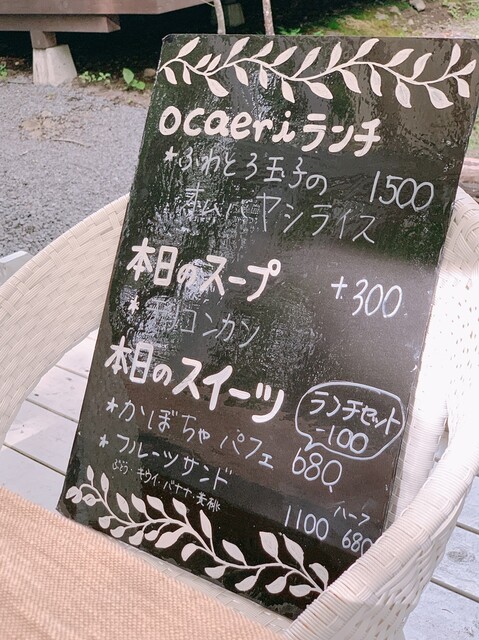 ocaeriランチ
*ふわとろ玉子の 1500
ヤシライス
本日のスープ +300
*コンカン
本日のスイーツ
ランチセット
-100
*かぼちゃパフェ 680
*フルーツサンド
ぶどう・キウイ・バナナ・黄桃
ハーフ
1100 680